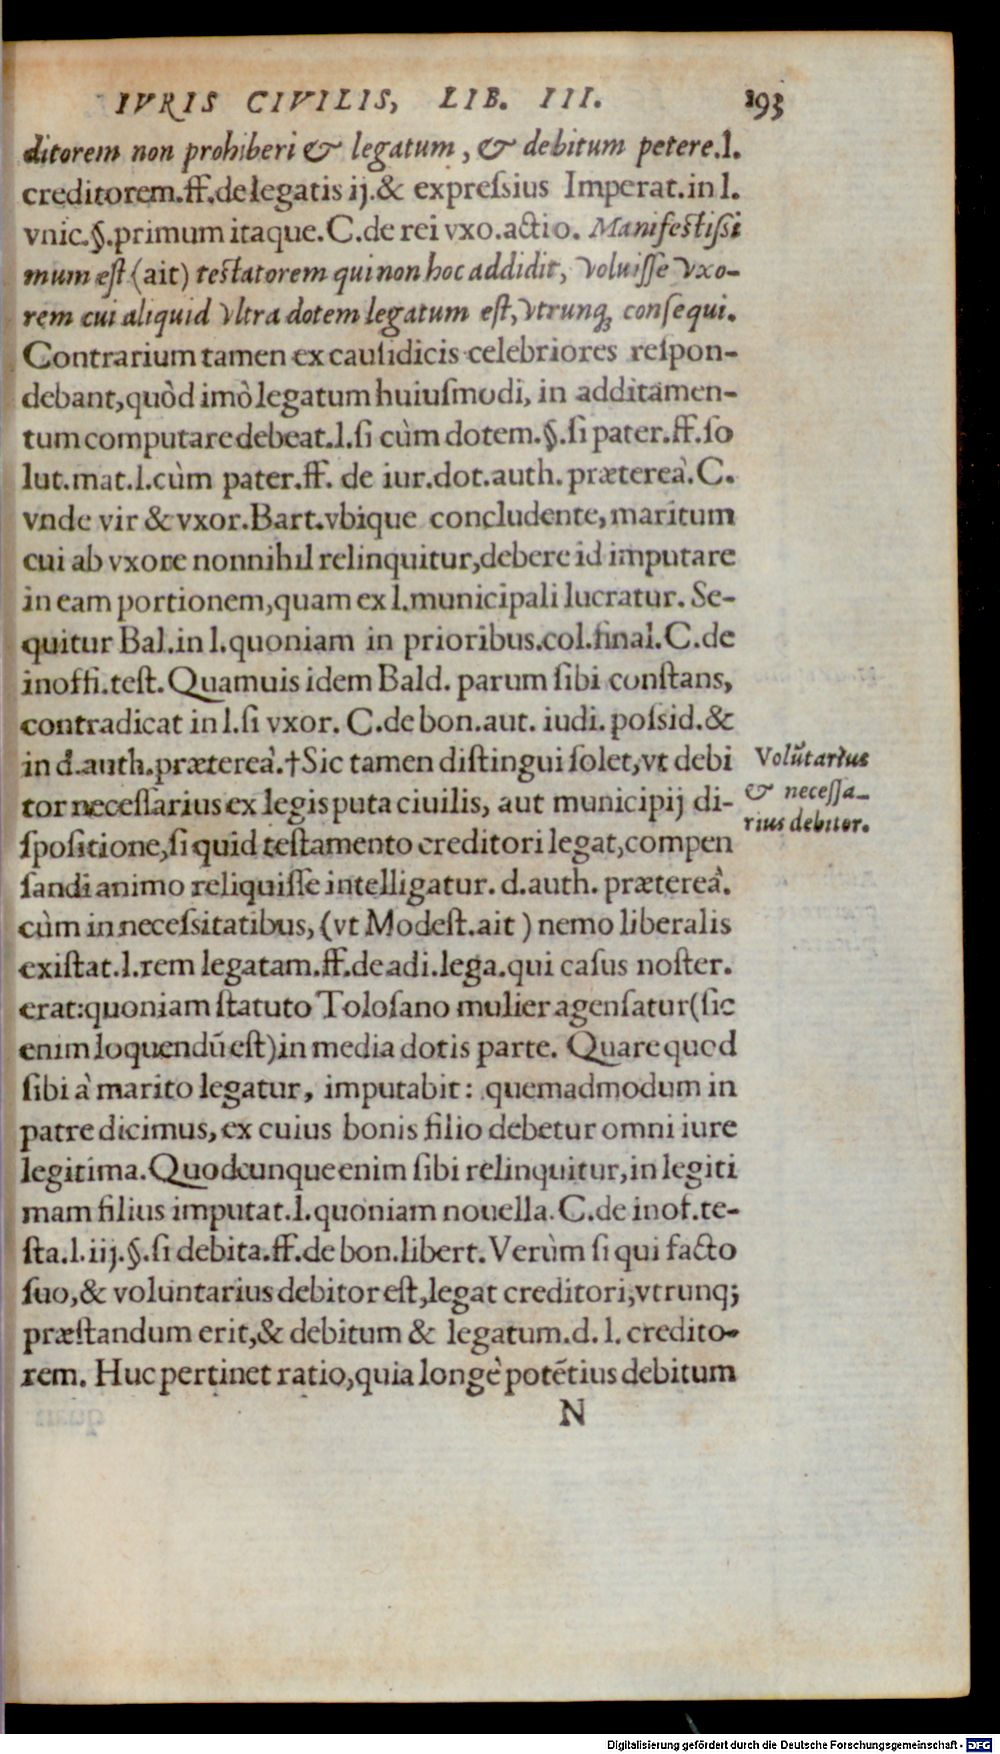 IVRIS CIVILIS, LIB. III. 193
ditorem non prohiberi & legatum, & debitum petere.l.
creditorem.ff.de legatis ij.& expreſsius Imperat.in l.
vnic.§.primum itaque.C.de rei vxo.actio. Manifeſtiſsi
mum eſt (ait) teſtatorem qui non hoc addidit, voluiſſe vxo-
rem cui aliquid vltra dotem legatum eſt, vtrunq; conſequi.
Contrarium tamen ex cauſidicis celebriores reſpon-
debant,quòd imò legatum huiuſmodi, in additamen-
tum computare debeat.l.ſi cùm dotem.§.ſi pater.ff.ſo
lut.mat.l.cùm pater.ff. de iur.dot.auth. prætereà.C.
vnde vir & vxor.Bart.vbique concludente, maritum
cui ab vxore nonnihil relinquitur,debere id imputare
in eam portionem,quam ex l.municipali lucratur. Se-
quitur Bal.in l.quoniam in prioribus.col.final.C.de
inoffi.teſt. Quamuis idem Bald. parum ſibi conſtans,
contradicat in l.ſi vxor. C.de bon.aut. iudi. poſsid.&
in d.auth.prætereà.†Sic tamen diſtingui ſolet,vt debi
tor neceſſarius ex legis puta ciuilis, aut municipij di-
ſpoſitione,ſi quid teſtamento creditori legat,compen
ſandi animo reliquiſſe intelligatur. d.auth. prætereà.
cùm in neceſsitatibus, (vt Modeſt.ait ) nemo liberalis
exiſtat.l.rem legatam.ff.de adi.lega.qui caſus noſter.
erat:quoniam ſtatuto Toloſano mulier agenſatur(ſic
enim loquendū eſt)in media dotis parte. Quare quod
ſibi à marito legatur, imputabit: quemadmodum in
patre dicimus, ex cuius bonis filio debetur omni iure
legitima. Quodcunque enim ſibi relinquitur, in legiti
mam filius imputat.l.quoniam nouella. C.de inof.te-
ſta.l.iij.§.ſi debita.ff.de bon.libert. Verùm ſi qui facto
ſuo,& voluntarius debitor eſt,legat creditori,vtrunq;
præſtandum erit,& debitum & legatum.d. l. credito-
rem. Huc pertinet ratio,quia longè potētius debitum
N
Volūtarius
& neceſſa-
rius debitor.
Digitalisierung gefördert durch die Deutsche Forschungsgemeinschaft - DFG